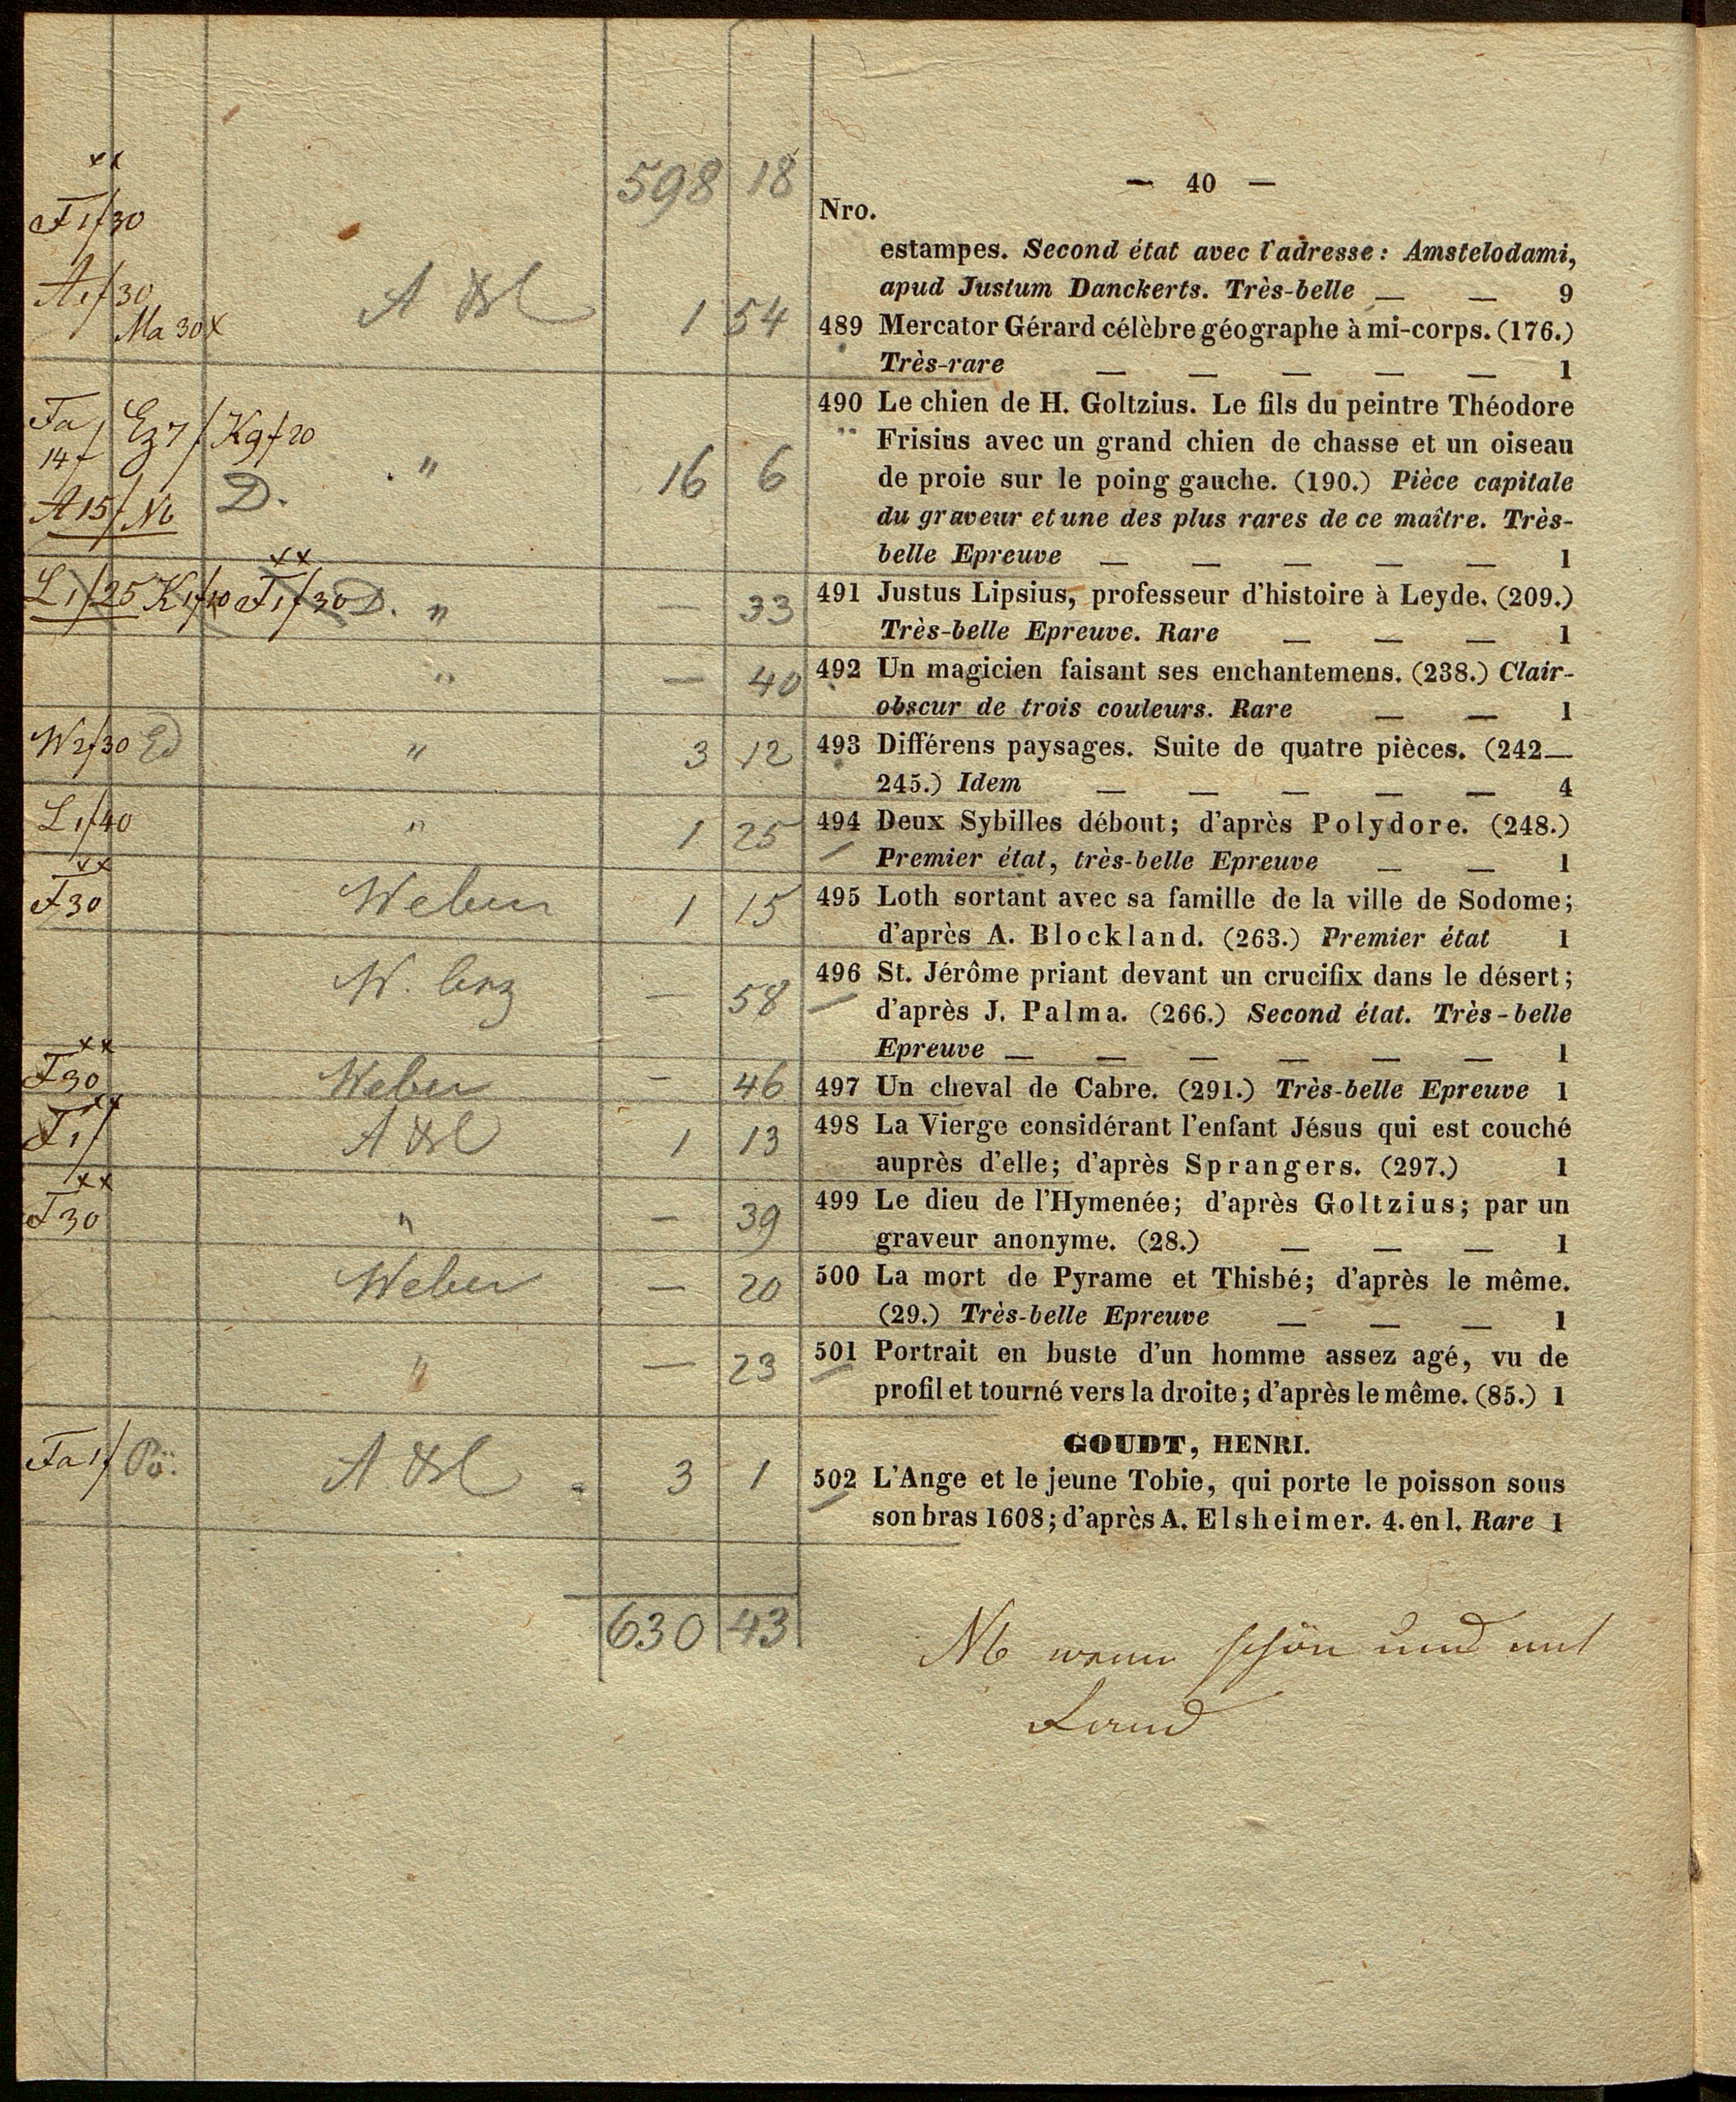 598 18
— 40 —
Nro.
estampes. Second état avec l'adresse: Amstelodami,
apud Justum Danckerts. Très-belle — — 9
F 1f 30
A 1f 30
Ma 30 x
1 54
489 Mercator Gérard célèbre géographe à mi-corps. (176.)
Très-rare — — — — — 1
Fa 14f
Ez 7f
Kg f 20
A 15f N6
D.
" 16 6
490 Le chien de H. Goltzius. Le fils du peintre Théodore
Frisius avec un grand chien de chasse et un oiseau
de proie sur le poing gauche. (190.) Pièce capitale
du graveur et une des plus rares de ce maître. Très-
belle Epreuve — — — — — 1
L 1f 25 K 1f 10 F 1f 30 D. " — 33
491 Justus Lipsius, professeur d'histoire à Leyde. (209.)
Très-belle Epreuve. Rare — — — 1
" — 40
492 Un magicien faisant ses enchantemens. (238.) Clair-
obscur de trois couleurs. Rare — — 1
W 2f 30 Ed " 3 12
493 Différens paysages. Suite de quatre pièces. (242—
245.) Idem — — — — — 4
L 1f 40 " 1 25
494 Deux Sybilles débout; d'après Polydore. (248.)
Premier état, très-belle Epreuve — — 1
F 30 Weber 1 15
495 Loth sortant avec sa famille de la ville de Sodome;
d'après A. Blockland. (263.) Premier état 1
— 58
496 St. Jérôme priant devant un crucifix dans le désert;
d'après J. Palma. (266.) Second état. Très-belle
Epreuve — — — — — — 1
F 30 Weber — 46
497 Un cheval de Cabre. (291.) Très-belle Epreuve 1
F 1f 1 13
498 La Vierge considérant l'enfant Jésus qui est couché
auprès d'elle; d'après Sprangers. (297.) 1
F 30 " — 39
499 Le dieu de l'Hymenée; d'après Goltzius; par un
graveur anonyme. (28.) — — — 1
Weber — 20
500 La mort de Pyrame et Thisbé; d'après le même.
(29.) Très-belle Epreuve — — — 1
" — 23
501 Portrait en buste d'un homme assez agé, vu de
profil et tourné vers la droite; d'après le même. (85.) 1
GOUDT, HENRI.
Fa 1f Pö. 3 1
502 L'Ange et le jeune Tobie, qui porte le poisson sous
son bras 1608; d'après A. Elsheimer. 4. en l. Rare 1
630 43
wenn schön und mit
Rand